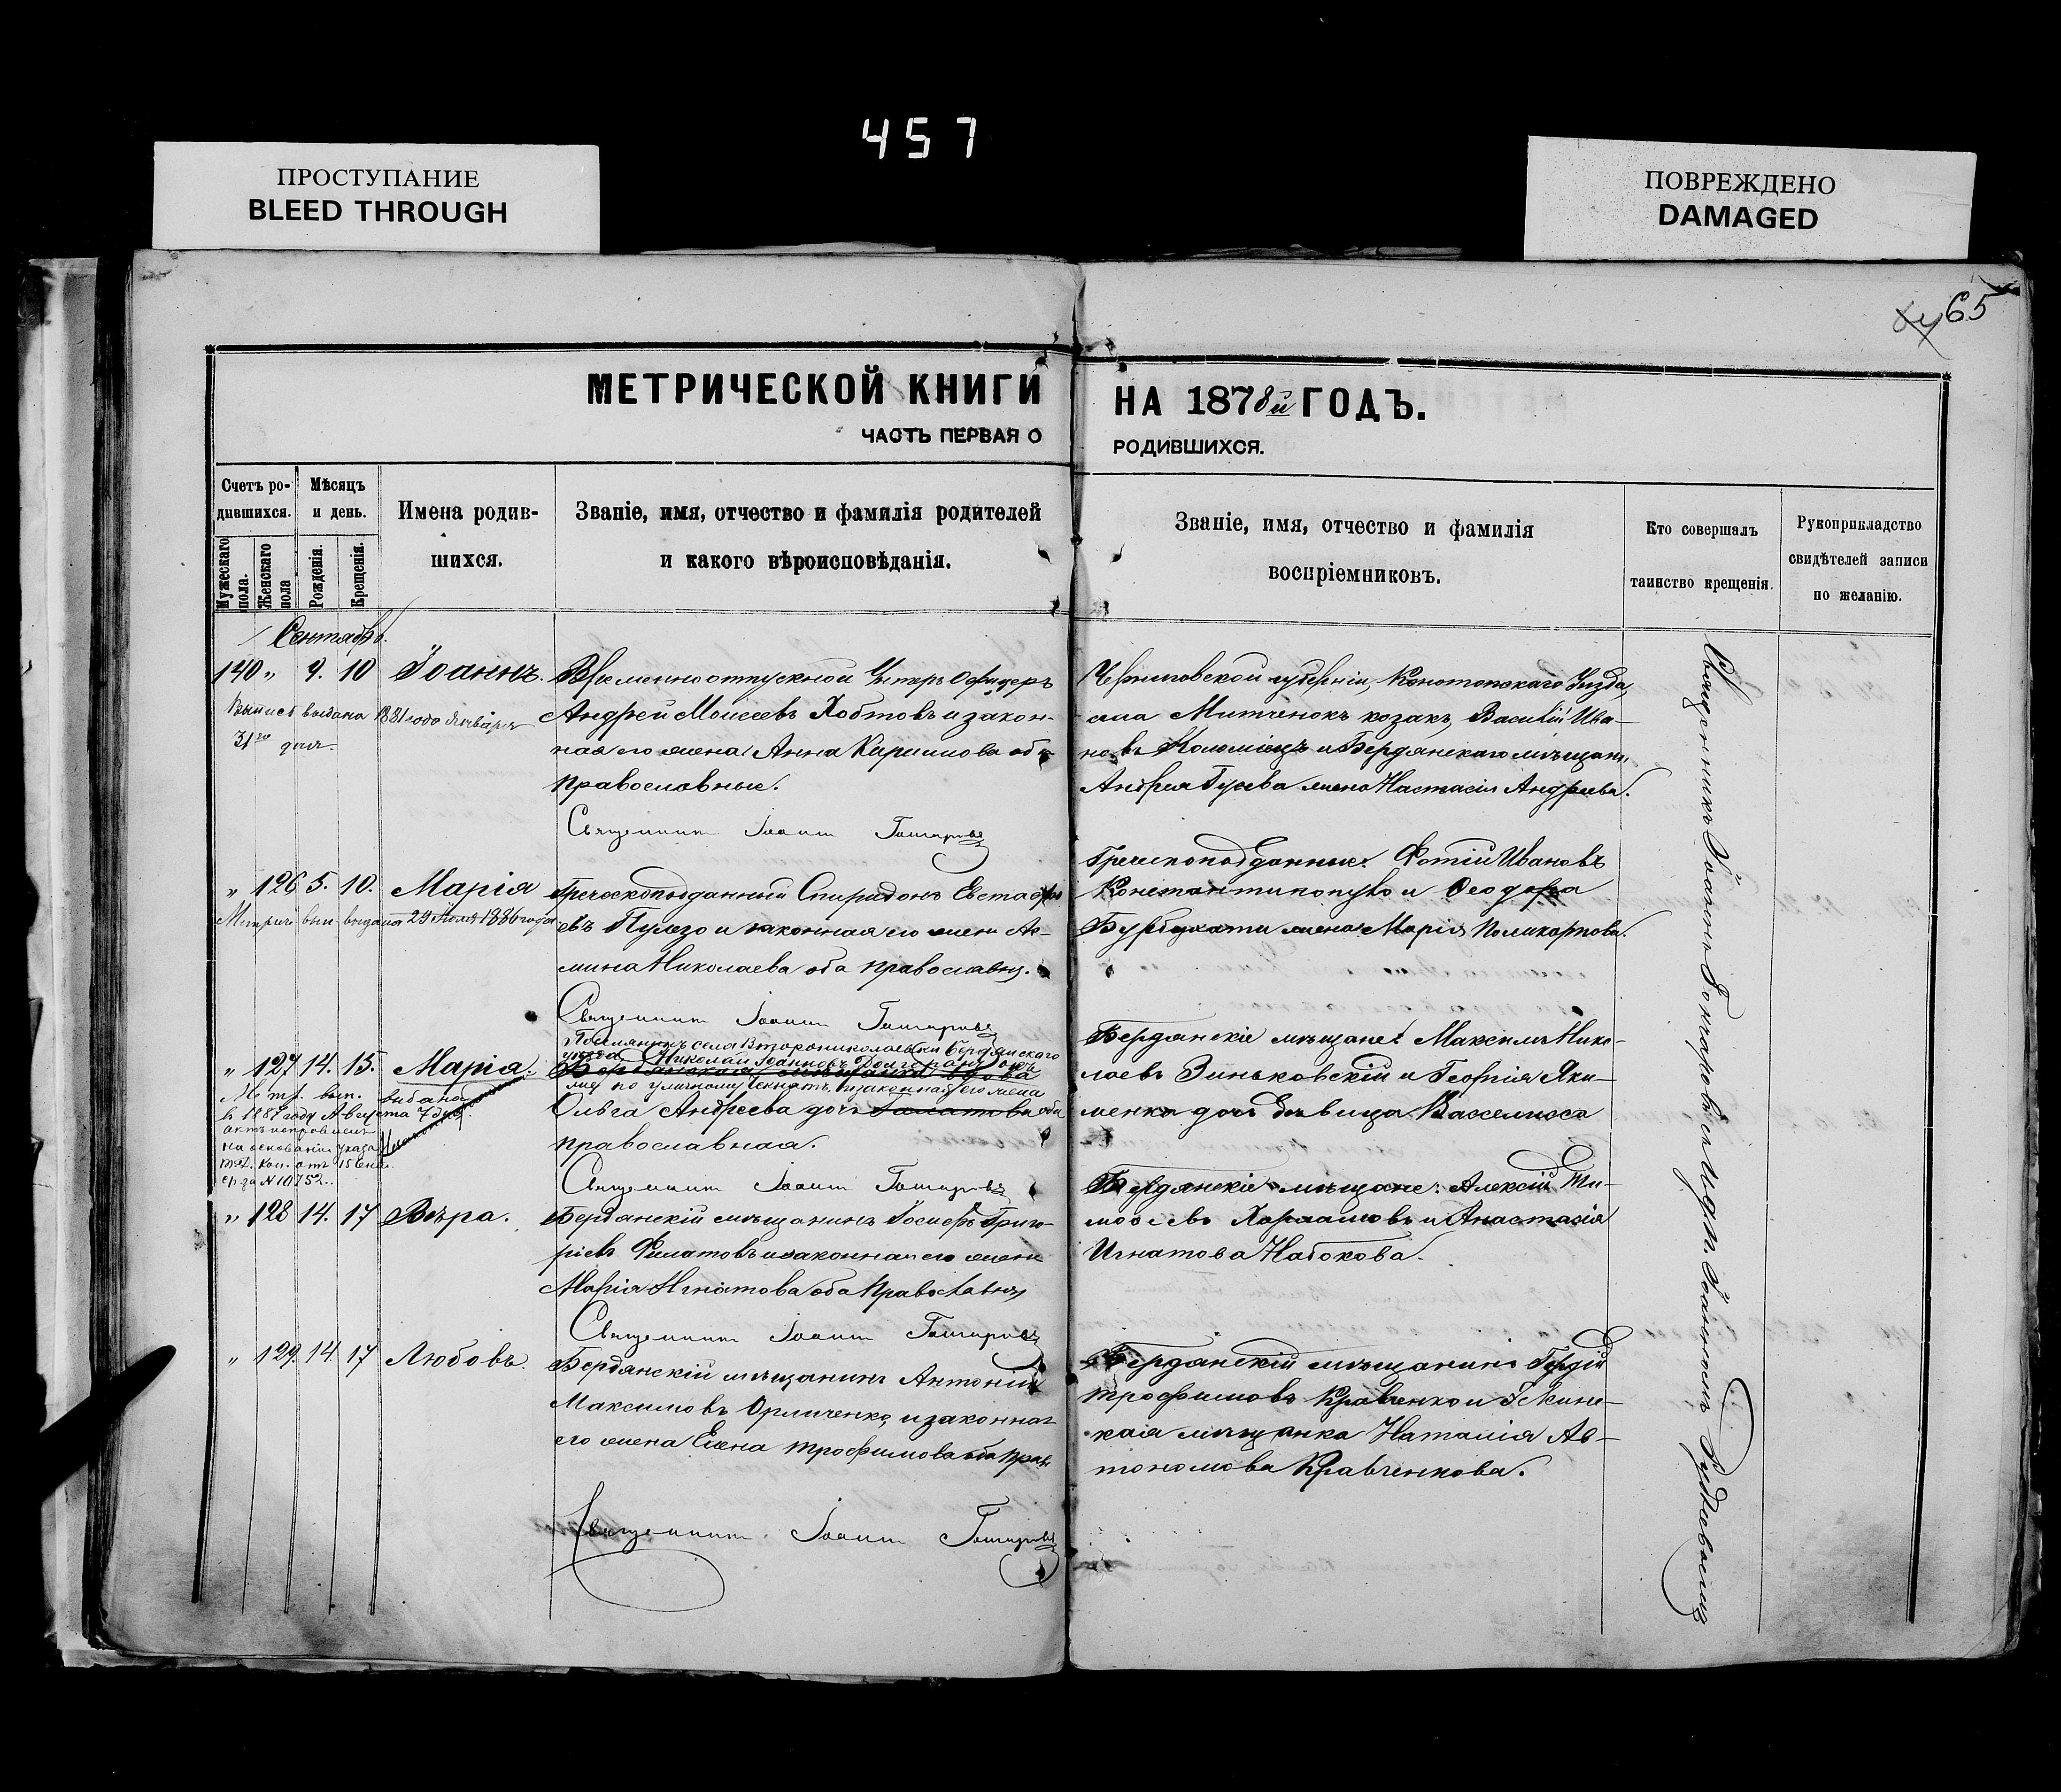 457
ПРОСТУПАНИЕ
BLEED THROUGH
ПОВРЕЖДЕНО
DAMAGED
65
МЕТРИЧЕСКОЙ КНИГИ
НА 1878й ГОДЪ.
ЧАСТЬ ПЕРВАЯ О
РОДИВШИХСЯ.
Счетъ ро-
дившихся.
Мужескаго пола.
Женскаго пола
Мѣсяцъ
и день.
Рожденія.
Крещенія.
Имена родив-
шихся.
Званіе, имя, отчество и фамилія родителей
и какого вѣроисповѣданія.
Званіе, имя, отчество и фамилія
воспріемниковъ.
Кто совершалъ
таинство крещенія.
Рукоприкладство
свидѣтелей записи
по желанію.
Сентябрь.
140 " 9. 10 Іоаннъ.
Выпись выдана 1881 года Января
31го дня.
Временноотпускной Унтеръ Офицеръ
Андрей Моисеевъ Хобтовъ и закон-
ная его жена Анна Кирилова оба
православные.
Священникъ Іоаннъ Гончаровъ
Черниговской губерніи, Конотопскаго Уѣзда,
села Митченокъ козакъ, Василій Ива-
новъ Коломіецъ и Бердянскаго мѣщани.
Андрея Гусева жена Настасія Андреева.
" 126 5. 10. Марія
Метрич. вып. выдана 29 1886 года
Греческоподданный Спиридонъ Евстафі
евъ и законная его жена Ас-
мина Николаева оба православны.
Священникъ Іоаннъ Гончаровъ
Греческоподданные: Фотій Ивановъ
Константинопуло и Ѳеодора
жена Марія Поликарпова.
" 127 14. 15. Марія.
Метр. вып. выдана
в 1887 году Августа 7 дня.
Актъ исправленъ
на основаніи указа
Тав. Кон. отъ 15
за N 10752.
Поселянинъ села Второниколаевки Бердянскаго
уѣзда Николай Іоанновъ
по уличному и законная его жена
Ольга Андреева дочь оба
православная.
Священникъ Іоаннъ Гончаровъ
Бердянскіе мѣщане: Максимъ Нико-
лаевъ Зиньковскій и Георгія Яки-
менка дочь дѣвица Васселисса
" 128 14. 17 Вѣра.
Бердянскій мѣщанинъ Іосифъ Григо-
ріевъ Филатовъ и законная его жена
Марія Игнатова оба православны
Священникъ Іоаннъ Гончаровъ
Бердянскіе мѣщане: Алексій Ти-
моѳеевъ Харламовъ и Анастасія
Игнатова Набокова.
" 129. 14. 17 Любовь.
Бердянскій мѣщанинъ Антоній
Максимовъ Орличенко и законная
его жена Елена Трофимова оба прав.
Священникъ Іоаннъ Гончаровъ
Бердянскій мѣщанинъ Гордій
Трофимовъ Кравченко и
кая мѣщанка Наталія Ав-
тономова Кравченкова.
Священникъ Іоаннъ Гончаровъ съ Іоанномъ